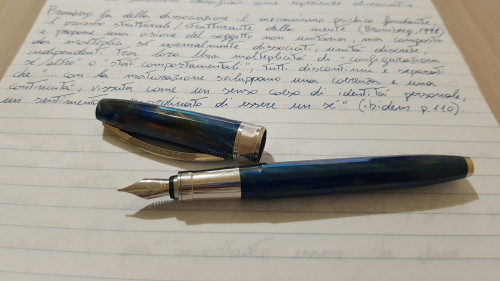 Bromberg fa della dissociazione il meccanismo psichico fondante,
il processo strutturale/strutturante della mente (Bromberg, 1998)
e propone una visione del soggetto non unitario, ma composto
da molteplici sé normalmente dissociati, unità discrete,
indipendenti tra loro. Una molteplicità di "configurazioni
sé/altro" o "stati comportamentali", tutti discontinui e separati
che "... con la maturazione sviluppano una coerenza e una
continuità, vissuta come un senso coeso di identità personale,
un sentimento coordinato di essere un sé" (ibidem p. 110)